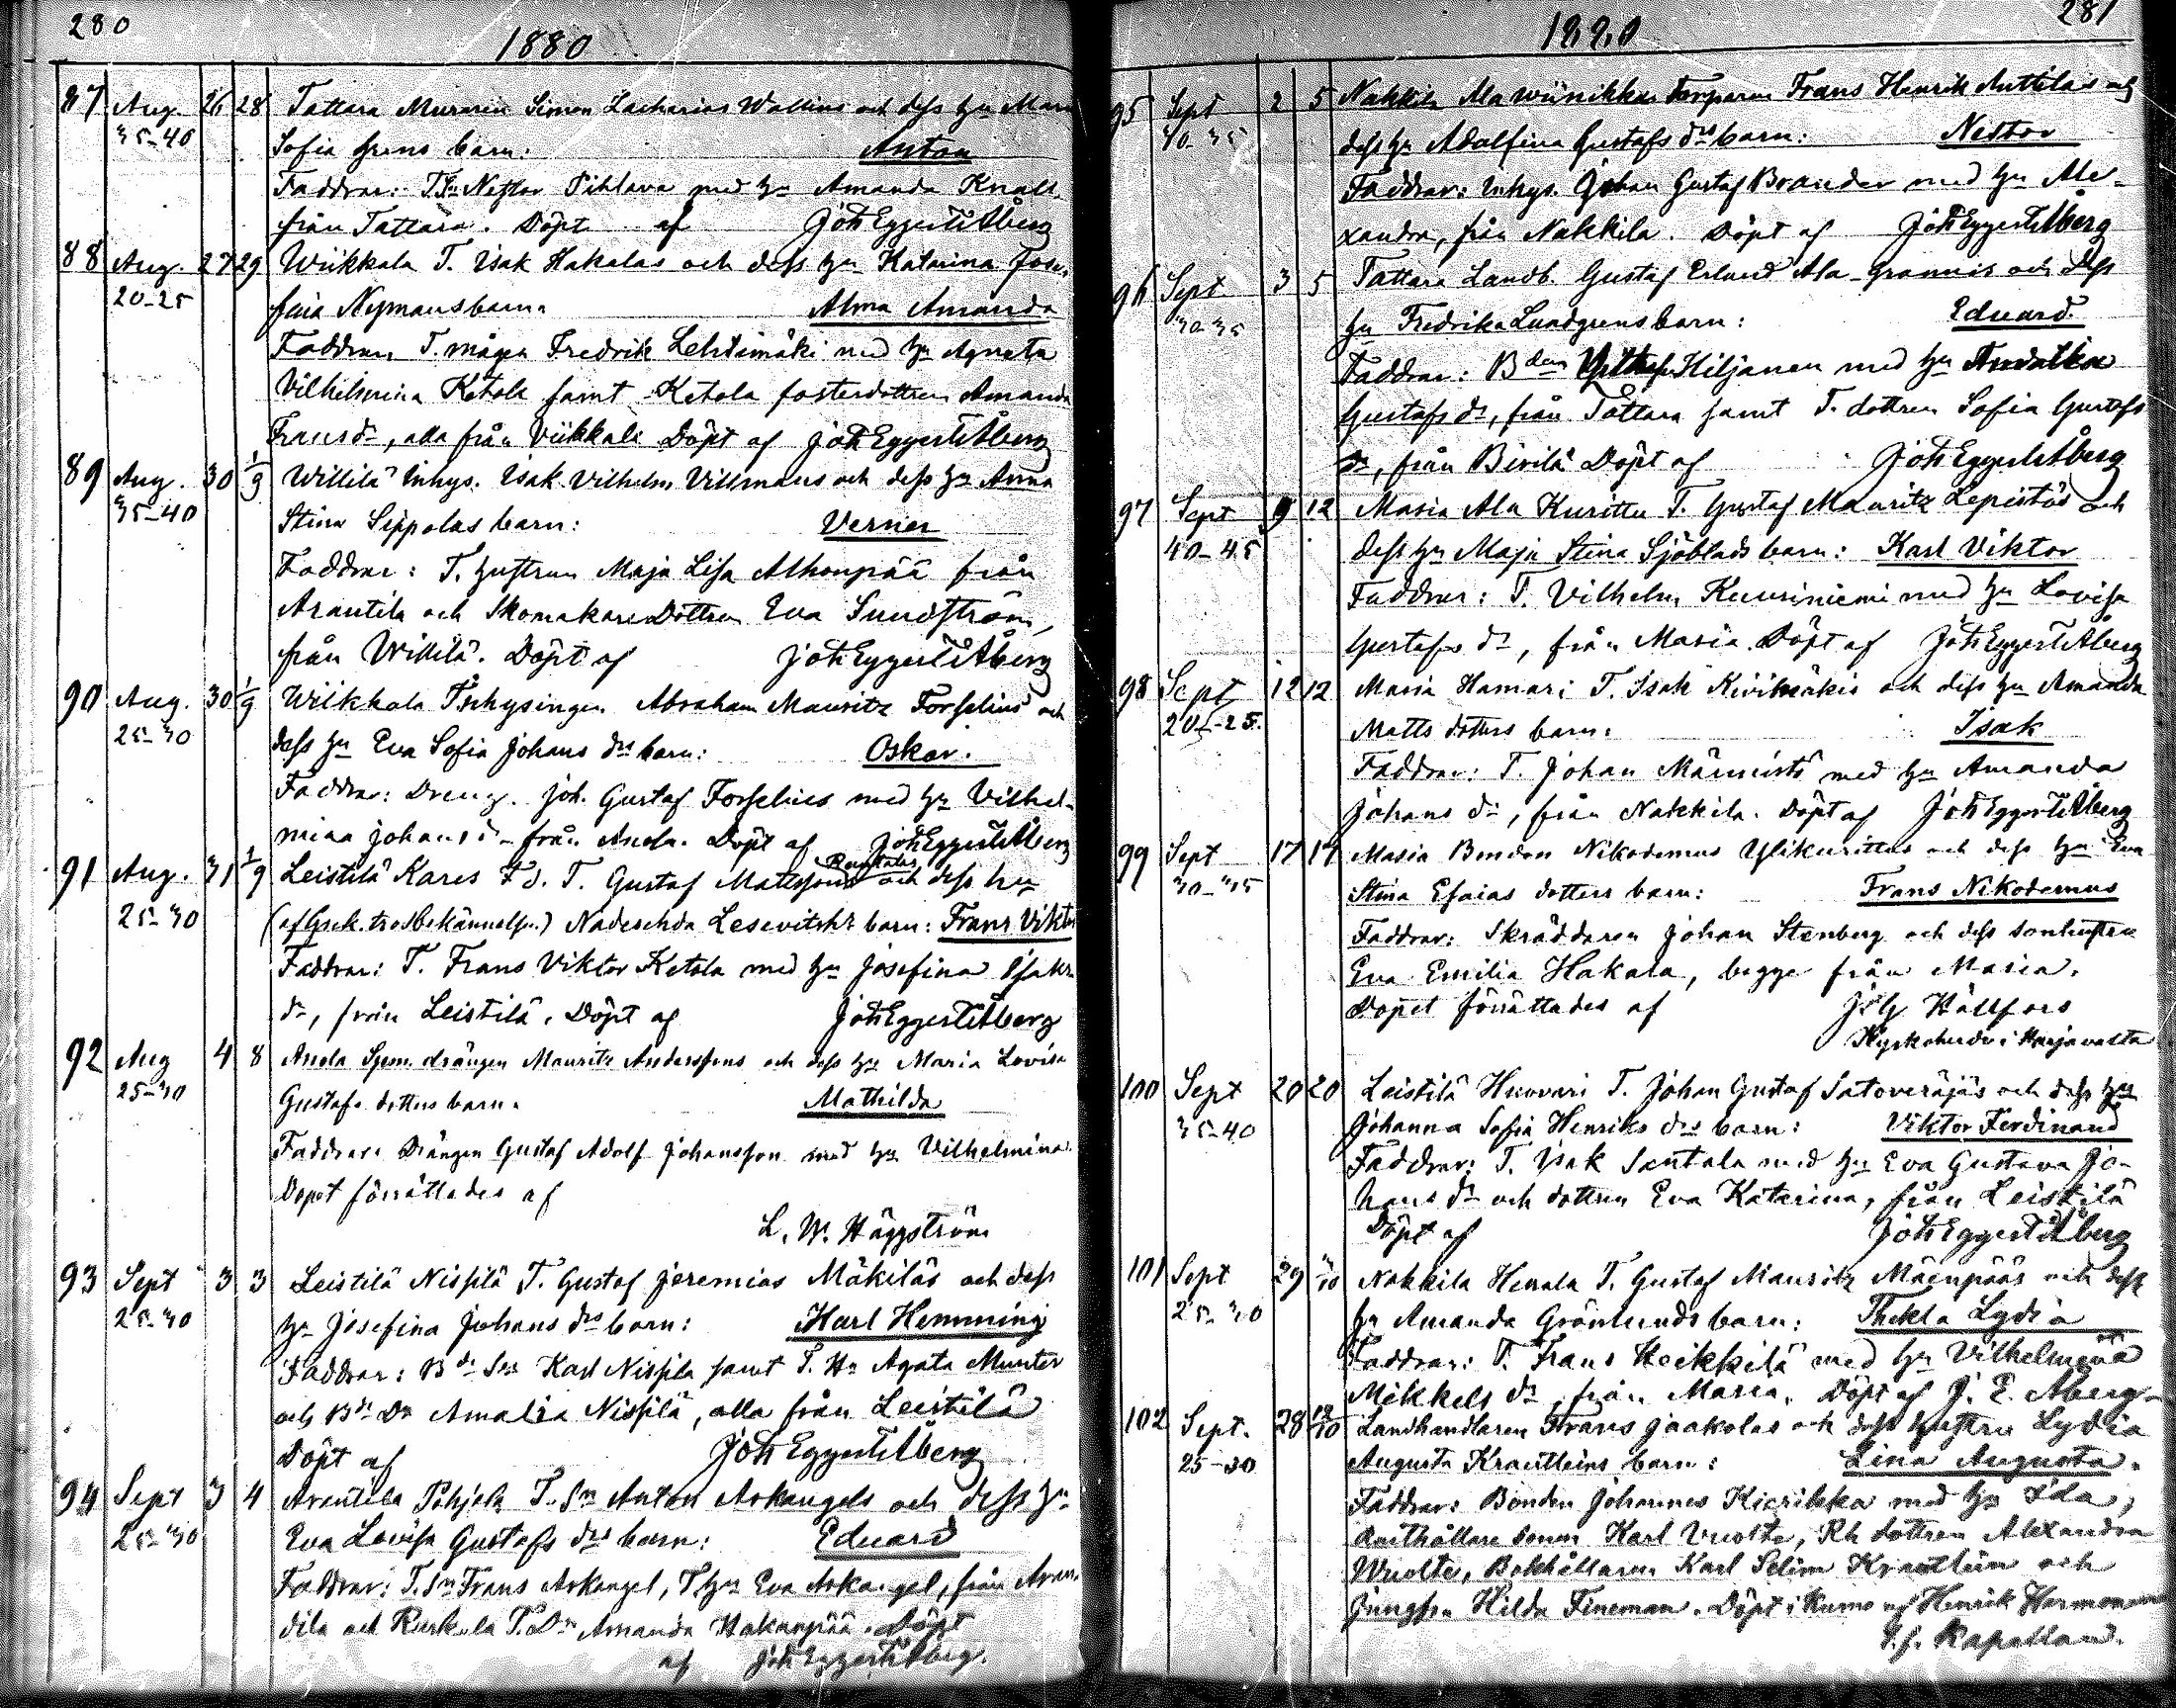 280
1880
87 Aug. 26 28 Tattara Muraren Simon Zacharias Wallins och dess Hu Maria
35-40 Sofia Grens barn: Anton
Faddrar: T.Sn Nestor Pihlava med Hu Amanda Knall
från Tattara. Döpt af Joh Eggert Åberg
88 Aug. 27 29 Wiikkala T. Isak Hakalas och dess Hu Katarina Jose-
20-25 fina Nymans barn: Alma Amanda
Faddrar T. mågen Fredrik Lehtimäki med Hu Agneta
Vilhelmina Ketola samt Ketola fosterdottren Amanda
Fransdr, alla från Viikkala Döpt af Joh Eggert Åberg
89 Aug. 30 1/9 Willilä Inhys. Isak Vilhelm Villmans och dess Hu Anna
35-40 Stina Sippolas barn: Verner
Faddrar: T. hustrun Maja Lisa Alhonpää från
Arantila och Skomakare Dottren Eva Sundström,
från Willilä. Döpt af Joh Eggert Åberg
90 Aug. 30 1/9 Wiikkala Inhysingen Abraham Mauritz Forselius och
25-30 dess Hu Eva Sofia Johans drs barn: Oskar.
Faddrar: Dreng. Joh. Gustaf Forselius med Hu Vilhel-
mina Johans dr från Anola. Döpt af Joh Eggert Åberg
91 Aug. 31 1/9 Leistilä Kares F.d. T. Gustaf Mattssons och dess hu
25-30 (af Grek. trosbekännelse.) Nadeschda Lesevitsks barn: Frans Viktor
Faddrar: T. Frans Viktor Ketola med Hu Josefina Isaks
dr, från Leistilä. Döpt af Joh Eggert Åberg
92 Aug 4 8 Anola Spm. drängen Mauritz Anderssons och dess Hu Maria Lovisa
25-30 Gustafs dotters barn. Mathilda
Faddrar: Drängen Gustaf Adolf Johansson med Hu Vilhelmina.
Dopet förrättades af
L. W. Häggström
93 Sept 3 3 Leistilä Nissilä T. Gustaf Jeremias Mäkiläs och dess
25-30 Hu Josefina Johans drs barn: Karl Hemming
Faddrar: Bde Sn Karl Nissila samt T. Hu Agata Munter
och Bde Dr Amalia Nissilä, alla från Leistilä
Döpt af Joh Eggert Åberg
94 Sept 3 4 Arantila Pohjola T. Sn Anton Arkangels och dess Hu
25-30 Eva Lovisa Gustafs drs barn: Eduard
Faddrar: T. Sn Frans Arkangel, T Hu Eva Arkangel, från Aran-
tila och Ruskila T. Dr Amanda Hakanpää. Döpt
af Joh Eggert Åberg.
281
1880
95 Sept 2 5 Nakkila Ala Wiinikka Torparen Frans Henrik Anttilas och
30-35 dess Hu Adolfina Gustafs drs barn: Nestor
Faddrar: Inhys. Johan Gustaf Brander med Hu Ale-
xandra, från Nakkila. Döpt af Joh Eggert Åberg
96 Sept 3 5 Tattara Landb. Gustaf Erland Ala-Grannis och dess
30-35 Hu Fredrika Lundgrens barn: Eduard.
Faddrar: Bden Hiljanen med Hu
Gustafs dr, från Tattara samt T. dottren Sofia Gustafs
dr, från Pirilä Döpt af Joh Eggert Åberg
97 Sept 9 12 Masia Ala Kurittu T. Gustaf Mauritz Lepistös och
40-45 dess Hu Maja Stina Sjöblads barn: Karl Viktor
Faddrar: T. Vilhelm Kuusiniemi med Hu Lovisa
Gustafs dr, från Masia. Döpt af Joh Eggert Åberg
98 Sept 12 12 Masia Hamari T. Isak Kivimäkis och dess Hu Amanda
20-25. Matts dotters barn: Isak
Faddrar: T. Johan Männistö med Hu Amanda
Johans dr, från Nakkila. Döpt af Joh Eggert Åberg
99 Sept 17 19 Masia Bonden Nikodemus Ylikurittus och dess Hu Eva
30-35 Stina Esaias dotters barn: Frans Nikodemus
Faddrar: Skräddaren Johan Stenberg och dess sonhustru
Eva Emilia Hakala, begge från Masia.
Dopet förrättades af J. G. Hällfors
Kyrkoherde i Harjavalta
100 Sept 20 20 Leistilä Huovari T. Johan Gustaf Satoveräjäs och dess Hu
35-40 Johanna Sofia Henriks drs barn: Viktor Ferdinand
Faddrar: T. Isak Santala med Hu Eva Gustava Jo-
hans dr och dottren Eva Katarina, från Leistilä
Döpt af Joh Eggert Åberg
101 Sept 29 3/10 Nakkila Henola T. Gustaf Mauritz Mäenpääs och dess
25-30 Hu Amanda Grönlunds barn: Thekla Lydia
Faddrar: T. Frans Heikkilä med Hu Vilhelmina
Mikkels dr från Masia. Döpt af J. E. Åberg
102 Sept. 28 12/10 Landhandlaren Frans Jaakolas och dess hustru Lydia
25-30 Augusta Krautleins barn: Lina Augusta.
Faddrar: Bonden Johannes Kierikka med Hu Ida,
Rusthållare sonen Karl Vuolte, Rh dottren Alexandra
Wuolte, Bokhållaren Karl Selim Krautlein och
Jungfru Hilda Fineman. Döpt i Kumo af Henrik Harmonen
t.f. Kapellan.